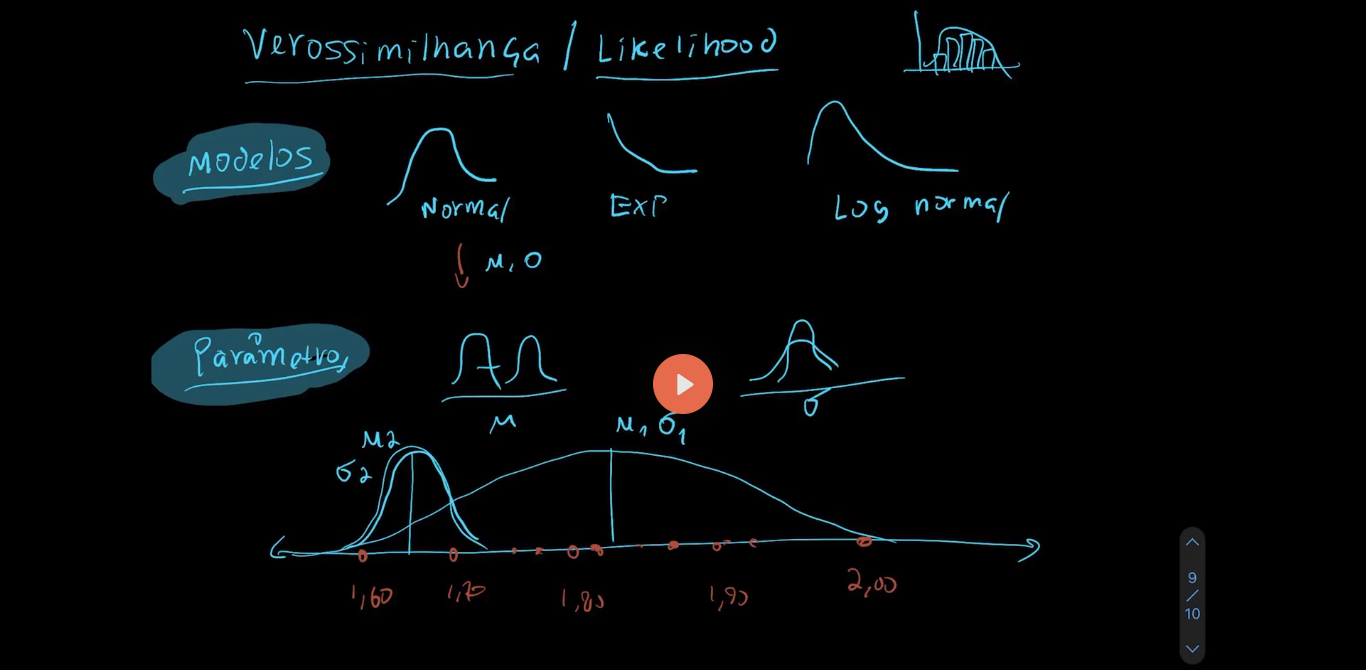 Verossimilhança / Likelihood
Modelos
Normal
EXP
Log normal
μ, σ
Parâmetros
μ
σ
μ1 σ1
μ2
σ2
1,60
1,70
1,80
1,90
2,00
9
/
10